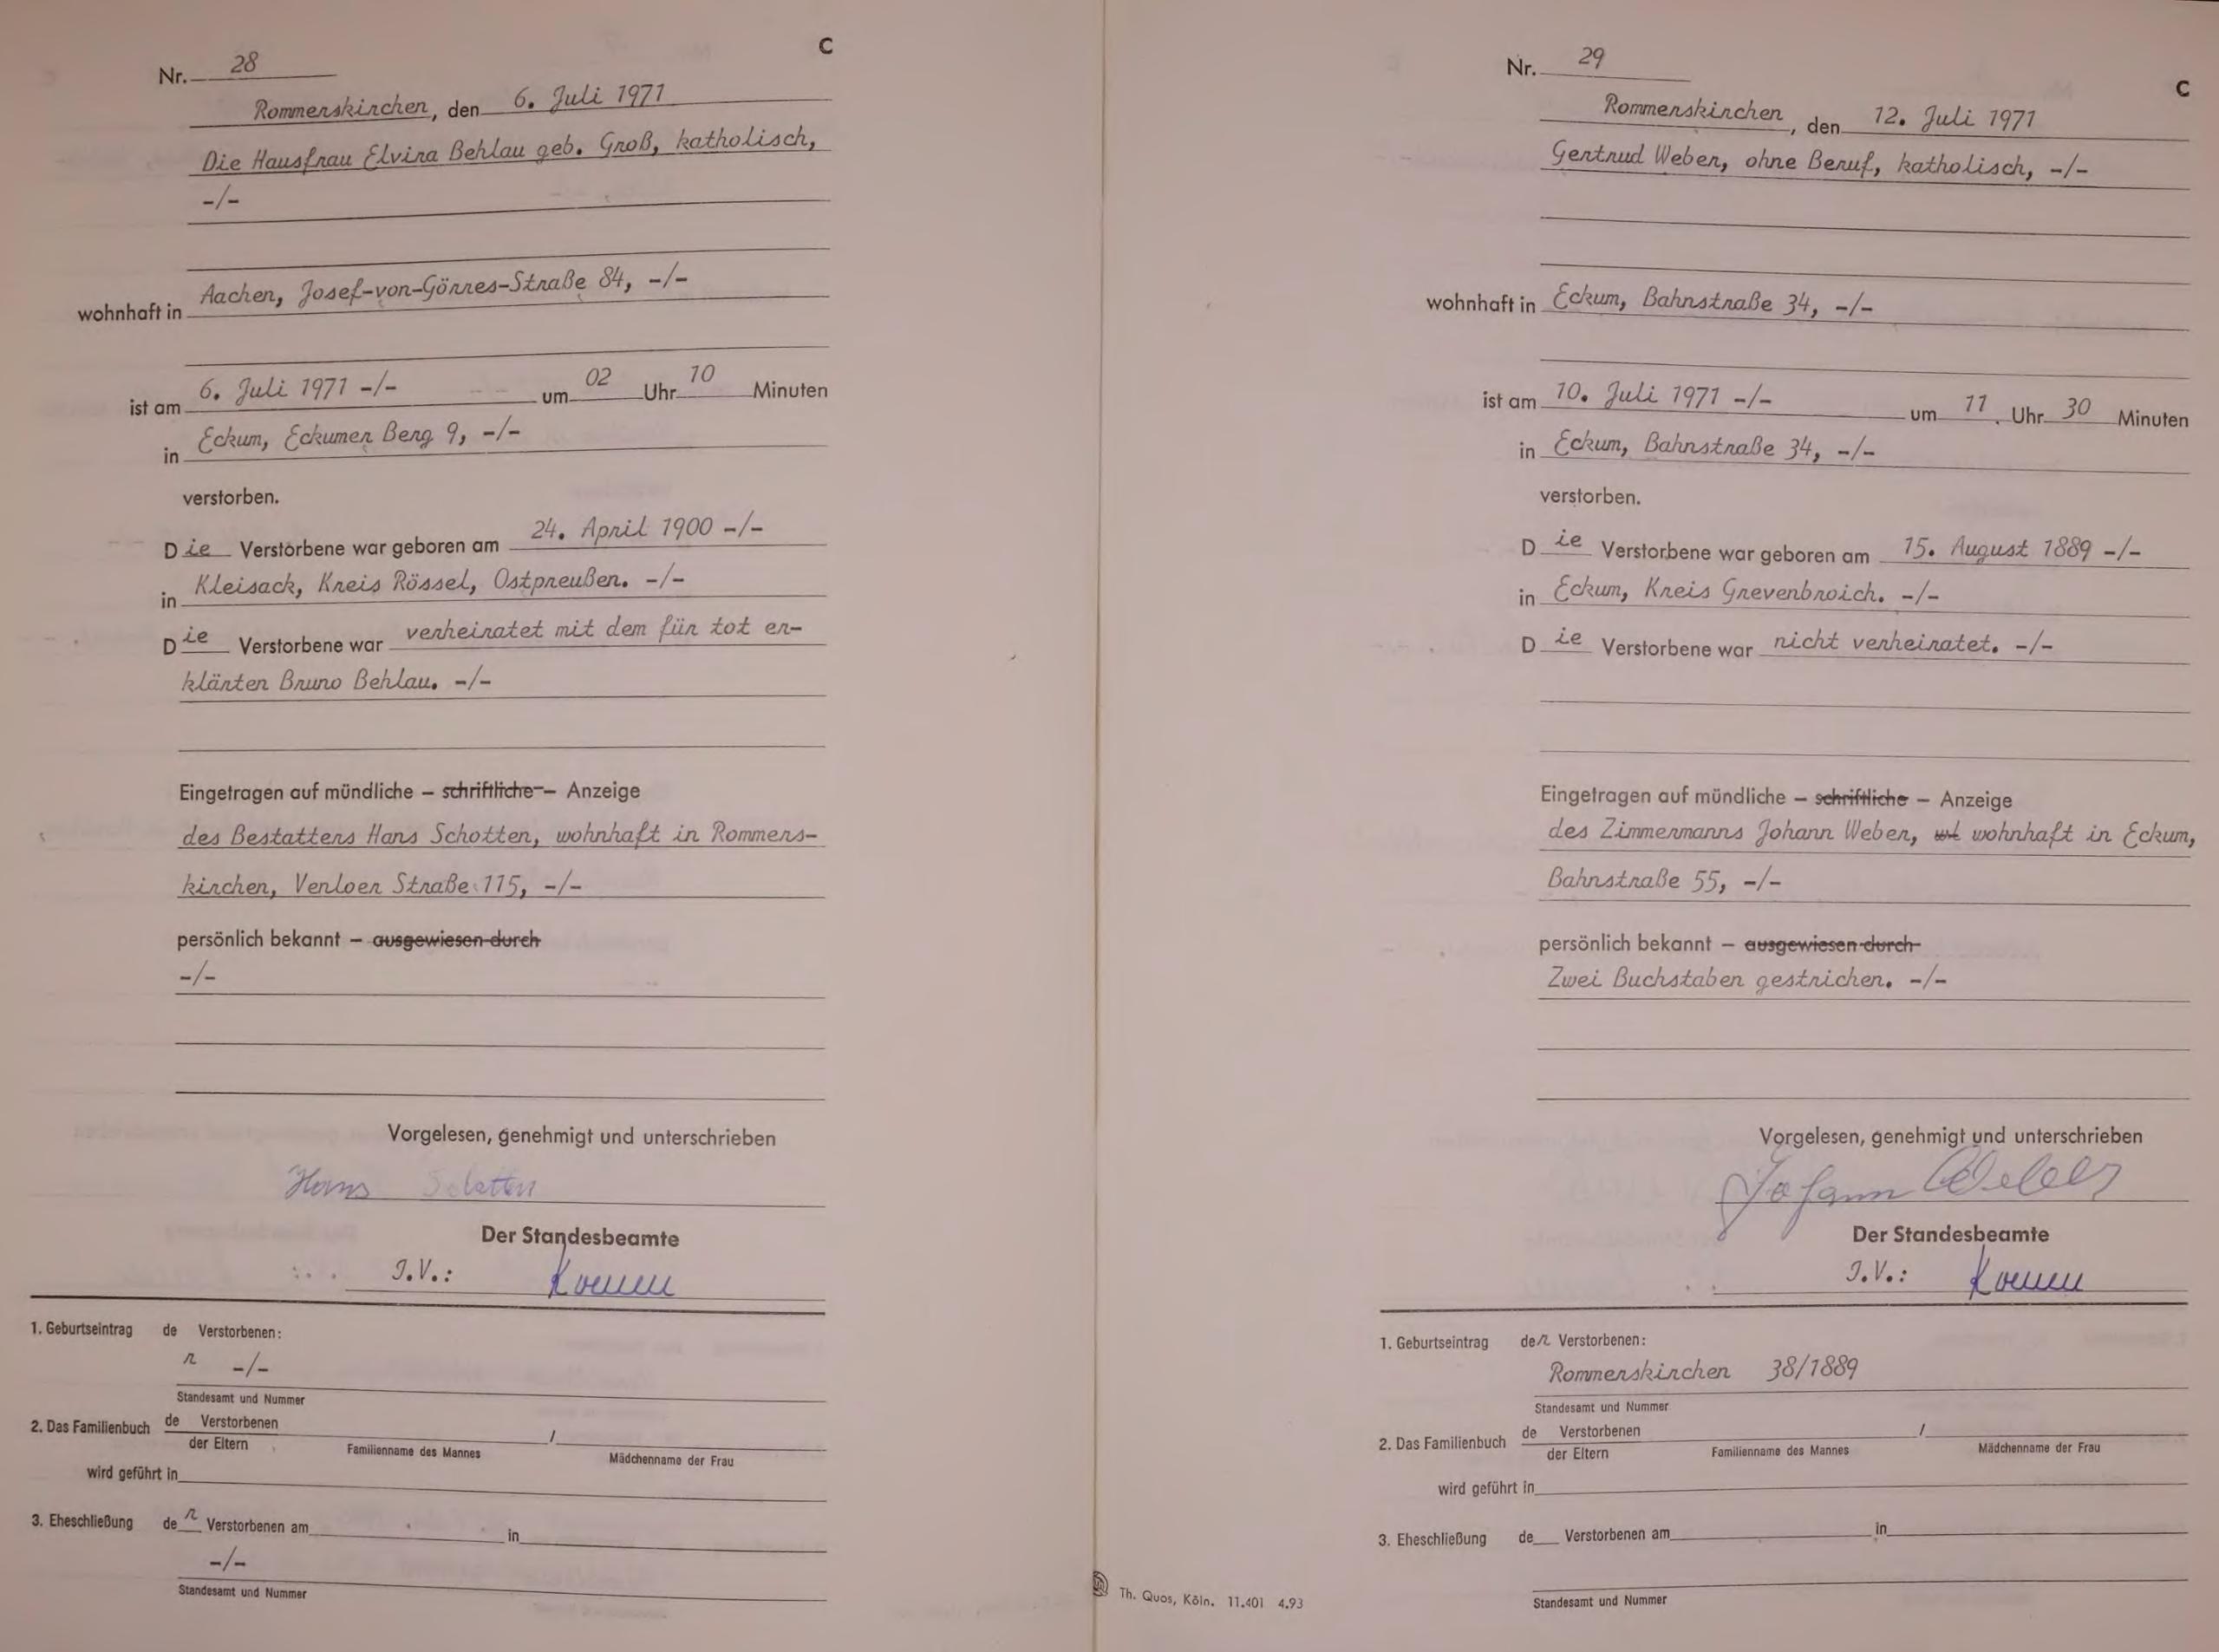 C
Nr. 28
Rommerskirchen, den 6. Juli 1971
Die Hausfrau Elvira Behlau geb. Groß, katholisch,
-/-
wohnhaft in Aachen, Josef-von-Görres-Straße 84, -/-
ist am 6. Juli 1971 -/- um 02 Uhr 10 Minuten
in Eckum, Eckumer Berg 9, -/-
verstorben.
Die Verstorbene war geboren am 24. April 1900 -/-
in Kleisack, Kreis Rössel, Ostpreußen. -/-
Die Verstorbene war verheiratet mit dem für tot er-
klärten Bruno Behlau. -/-
Eingetragen auf mündliche – schriftliche – Anzeige
des Bestatters Hans Schotten, wohnhaft in Rommers-
kirchen, Venloer Straße 115, -/-
persönlich bekannt – ausgewiesen durch
-/-
Vorgelesen, genehmigt und unterschrieben
Hans Schotten
Der Standesbeamte
I.V.:
1. Geburtseintrag de Verstorbenen:
r -/-
Standesamt und Nummer
2. Das Familienbuch de Verstorbenen /
der Eltern Familienname des Mannes Mädchenname der Frau
wird geführt in
3. Eheschließung der Verstorbenen am in
-/-
Standesamt und Nummer
Nr. 29
C
Rommerskirchen, den 12. Juli 1971
Gertrud Weber, ohne Beruf, katholisch, -/-
wohnhaft in Eckum, Bahnstraße 34, -/-
ist am 10. Juli 1971 -/- um 11 Uhr 30 Minuten
in Eckum, Bahnstraße 34, -/-
verstorben.
Die Verstorbene war geboren am 15. August 1889 -/-
in Eckum, Kreis Grevenbroich. -/-
Die Verstorbene war nicht verheiratet. -/-
Eingetragen auf mündliche – schriftliche – Anzeige
des Zimmermanns Johann Weber, wohnhaft in Eckum,
Bahnstraße 55, -/-
persönlich bekannt – ausgewiesen durch
Zwei Buchstaben gestrichen. -/-
Vorgelesen, genehmigt und unterschrieben
Johann Weber
Der Standesbeamte
I.V.:
1. Geburtseintrag der Verstorbenen:
Rommerskirchen 38/1889
Standesamt und Nummer
2. Das Familienbuch de Verstorbenen /
der Eltern Familienname des Mannes Mädchenname der Frau
wird geführt in
3. Eheschließung de Verstorbenen am in
Standesamt und Nummer
Th. Quos, Köln. 11.401 4.93